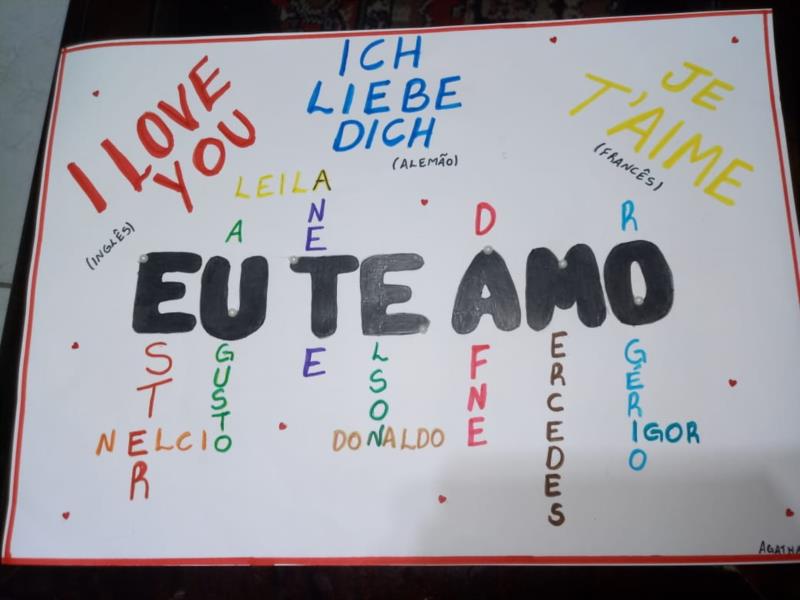 I LOVE
YOU
(INGLÊS)
ICH
LIEBE
DICH
(ALEMÃO)
JE
T'AIME
(FRANCÊS)
LEILA
EU TE AMO
ESTER
AUGUSTO
ANETE
ELSON
DAFNE
MERCEDES
ROGÉRIO
NELCIO
DONALDO
IGOR
AGATHA